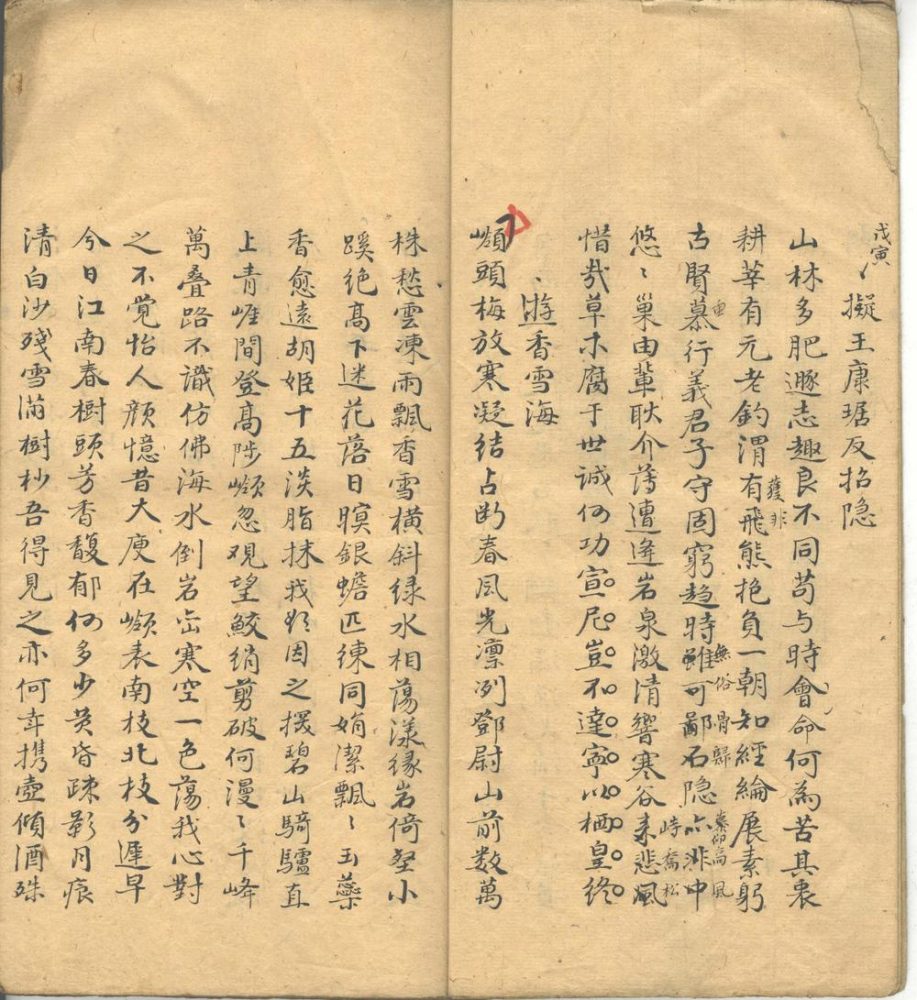 戊寅
擬王康琚反招隐
山林多肥遯志趣良不同苟与時會命何為苦其衷
耕莘有元老釣渭有飛熊抱負一朝知經綸展素躬
獲非
古賢慕行義君子守固窮趋時雖可鄙石隐亦非中
無俗骨歸
慕仰高風
悠〻巢由輩耿介薄遭逢岩泉激清響寒谷来悲風
峙喬松
惜哉草木腐于世誠何功宣尼豈不達寧以栖皇终
遊香雪海
嶺頭梅放寒凝结占断春風光凛冽鄧尉山前数萬
株愁雲凍雨飄香雪横斜绿水相蕩漾缘岩倚壑小
蹊绝高下迷花落日暝銀蟾匹練同娟潔飄〻玉蘂
香愈遠胡姬十五淡脂抹我欲因之摆碧山騎驢直
上青崕間登高陟嶺忽观望鲛绡剪破何漫〻千峰
萬叠路不識仿佛海水倒岩峦寒空一色蕩我心對
之不覺怡人颜憶昔大庾在嶺表南枝北枝分遲早
今日江南春樹頭芳香馥郁何多少黄昏疎影月痕
清白沙殘雪滿樹杪吾得見之亦何幸攜壺傾酒殊